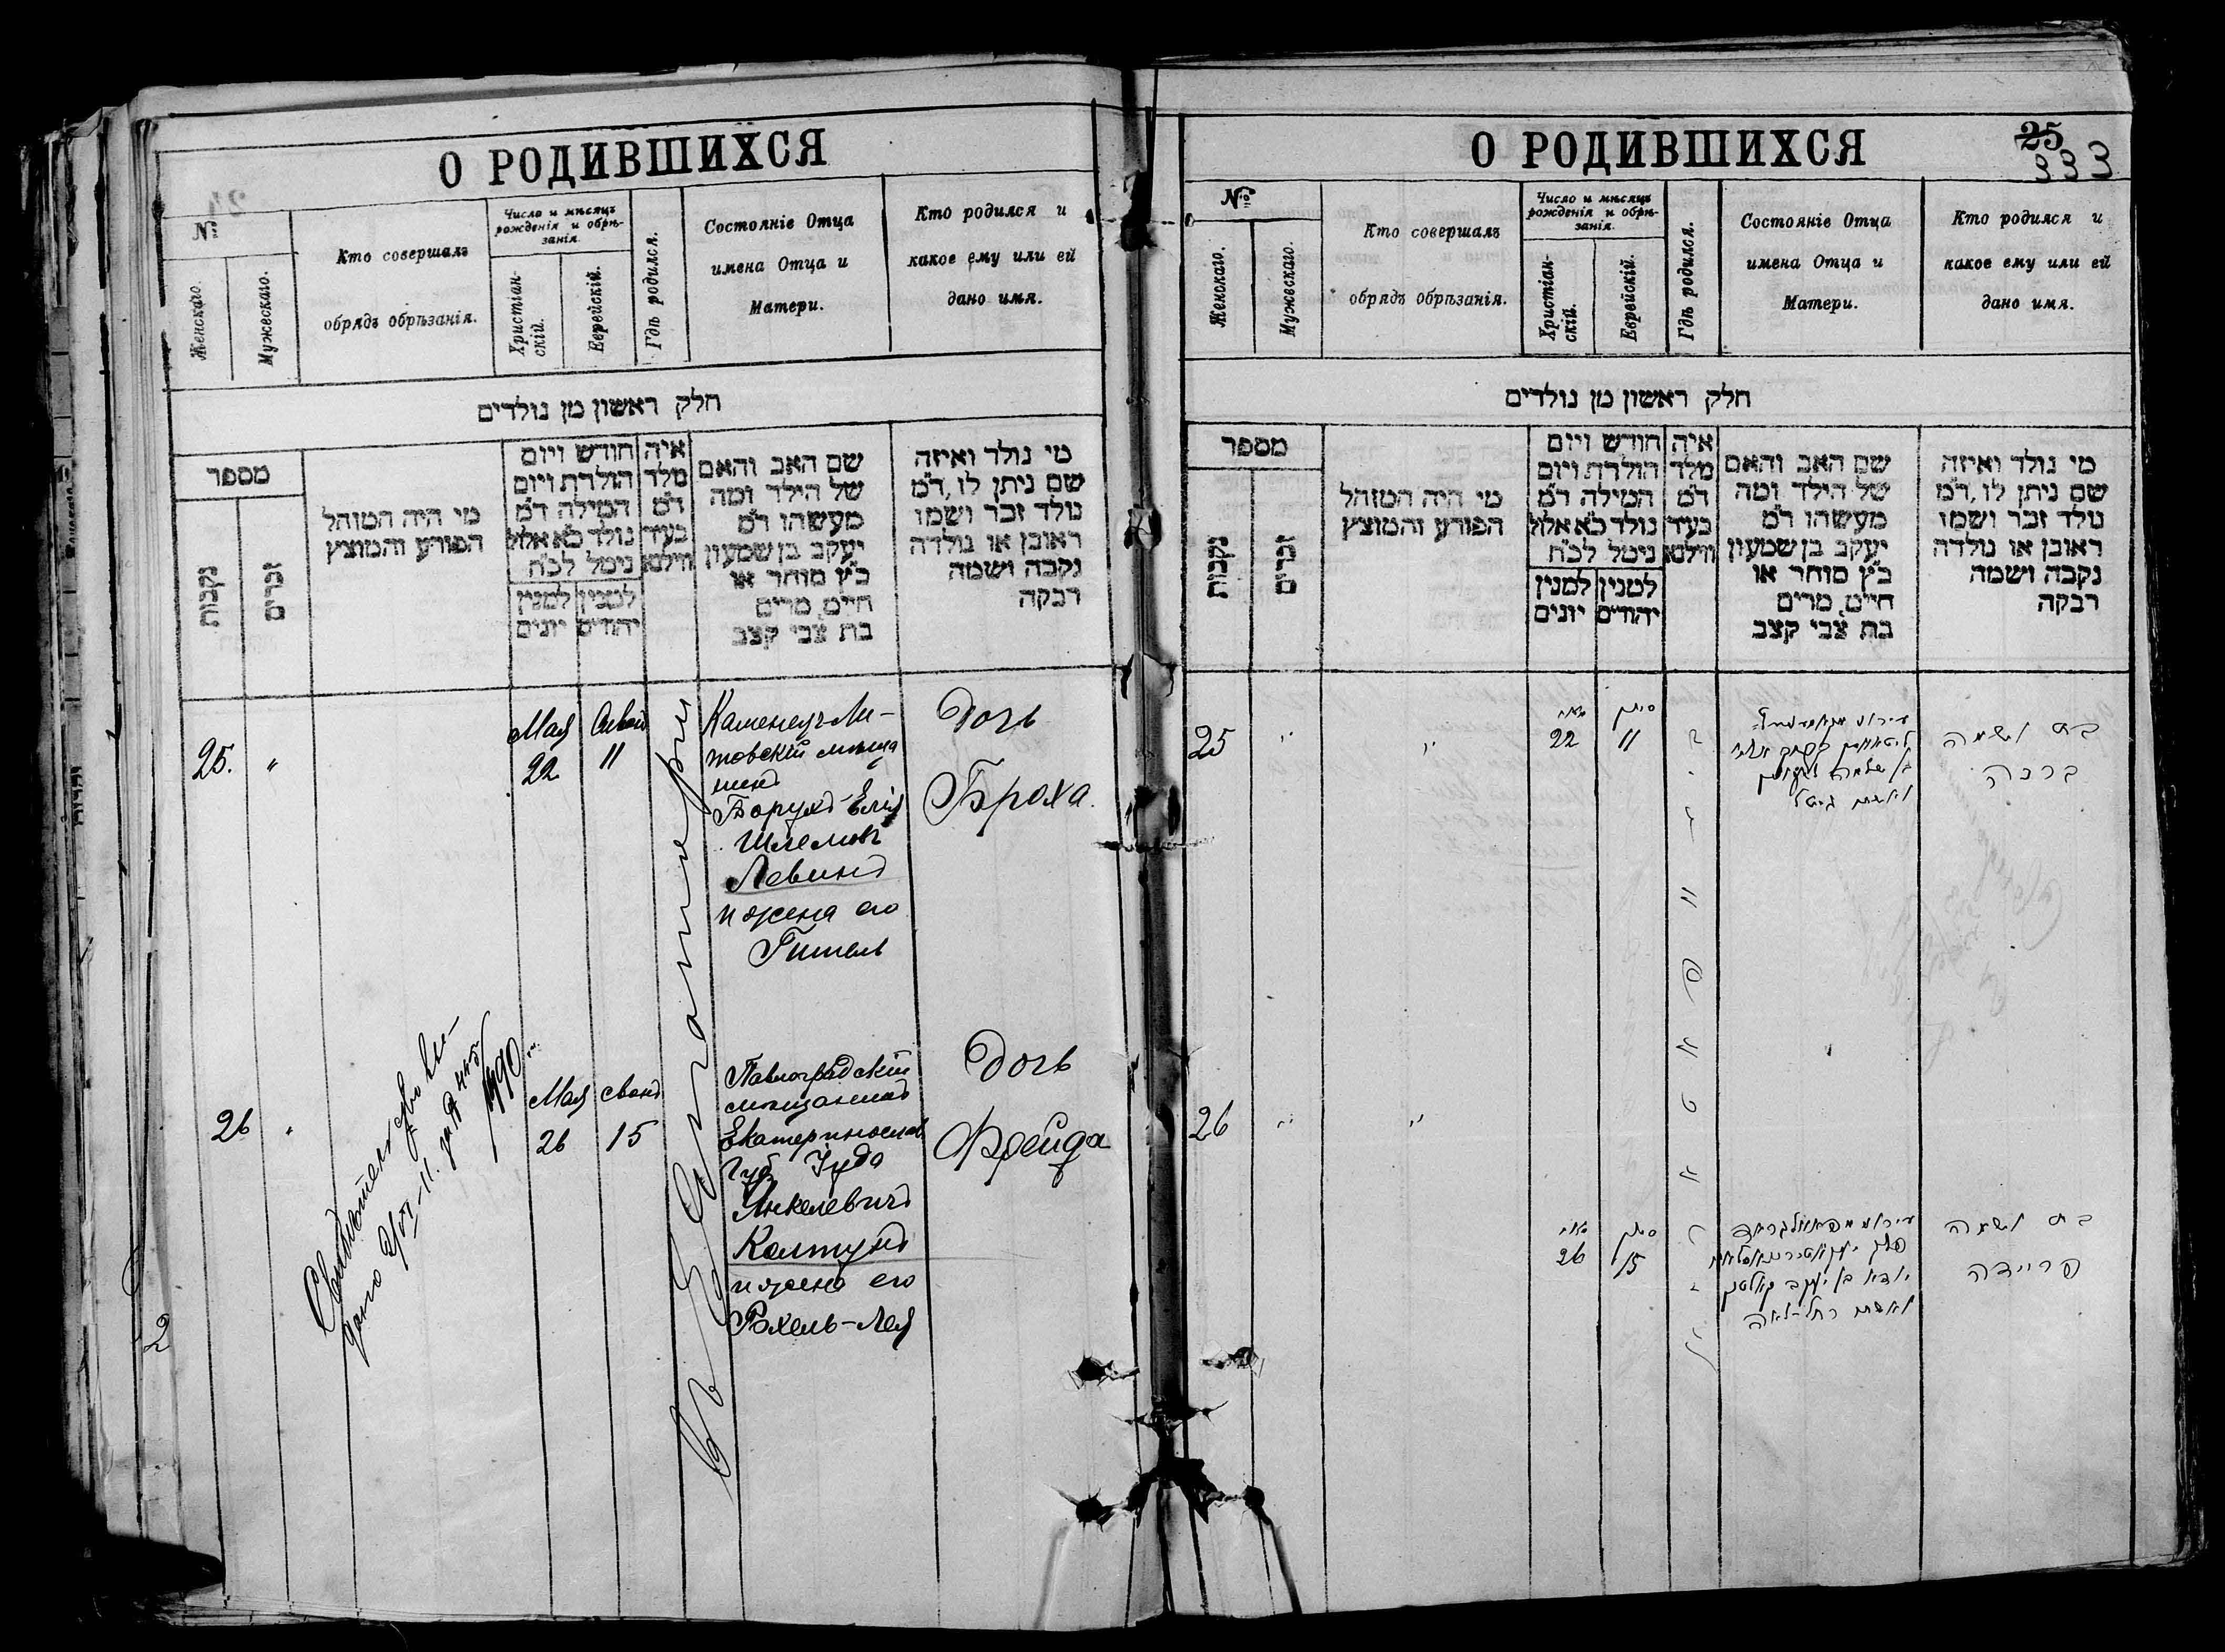 О РОДИВШИХСЯ
№
Женскаго.
Мужескаго.
Кто совершалъ
обрядъ обрѣзанія.
Число и мѣсяцъ
рожденія и обрѣ-
занія.
Христіан-
скій.
Еврейскій.
Гдѣ родился.
Состояніе Отца
имена Отца и
Матери.
Кто родился и
какое ему или ей
дано имя.
חלק ראשון מן נולדים
מספר
נקבות
זכרים
מי היה המוהל
הפורע והמוצץ
חודש ויום
הולדת ויום
המילה ד״מ
נולד כ״א אלול
נימל לכ״ח
למנין למנין
יהודים יונים
איה
מלד
ד״מ
בעיר
ווילנא
שם האב והאם
של הילד ומה
מעשהו ד״מ
יעקב בן שמעון
כ״ץ סוחר או
חייט מרים
בת צבי קצב
מי נולד ואיזה
שם ניתן לו, ד״מ
נולד זכר ושמו
ראובן או נולדה
נקבה ושמה
רבקה
25.
"
Мая
22
11
Каменецъ-Ли-
товскій мѣща
нинъ
Борухъ-Елія
Шлемовъ
Левинъ
и жена его
Гитель
Дочь
Броха.
26
"
Свидѣтельство вы-
дано
Мая
26
15
Павлоградскій
мѣщанинъ
Екатеринослав
Губ. Іуда
Янкелевичъ
Колтунъ
и жена его
Рохель-Лея
Дочь
Фрейда
въ Екатери
2
О РОДИВШИХСЯ
25
333
№
Женскаго.
Мужескаго.
Кто совершалъ
обрядъ обрѣзанія.
Число и мѣсяцъ
рожденія и обрѣ-
занія.
Христіан-
скій.
Еврейскій.
Гдѣ родился.
Состояніе Отца
имена Отца и
Матери.
Кто родился и
какое ему или ей
дано имя.
חלק ראשון מן נולדים
מספר
נקבות
זכרים
מי היה המוהל
הפורע והמוצץ
חודש ויום
הולדת ויום
המילה ד״מ
נולד כ״א אלול
נימל לכ״ח
למנין למנין
יהודים יונים
איה
מלד
ד״מ
בעיר
ווילנא
שם האב והאם
של הילד ומה
מעשהו ד״מ
יעקב בן שמעון
כ״ץ סוחר או
חייט מרים
בת צבי קצב
מי נולד ואיזה
שם ניתן לו, ד״מ
נולד זכר ושמו
ראובן או נולדה
נקבה ושמה
רבקה
25
"
"
מאי
22
סיון
11
בן שלמה
ואשתו גיטל
בת ושמה
ברכה
26
"
"
מאי
26
סיון
15
יודא בן יעקב קאלטון
ואשתו רחל-לאה
בת ושמה
פריידה